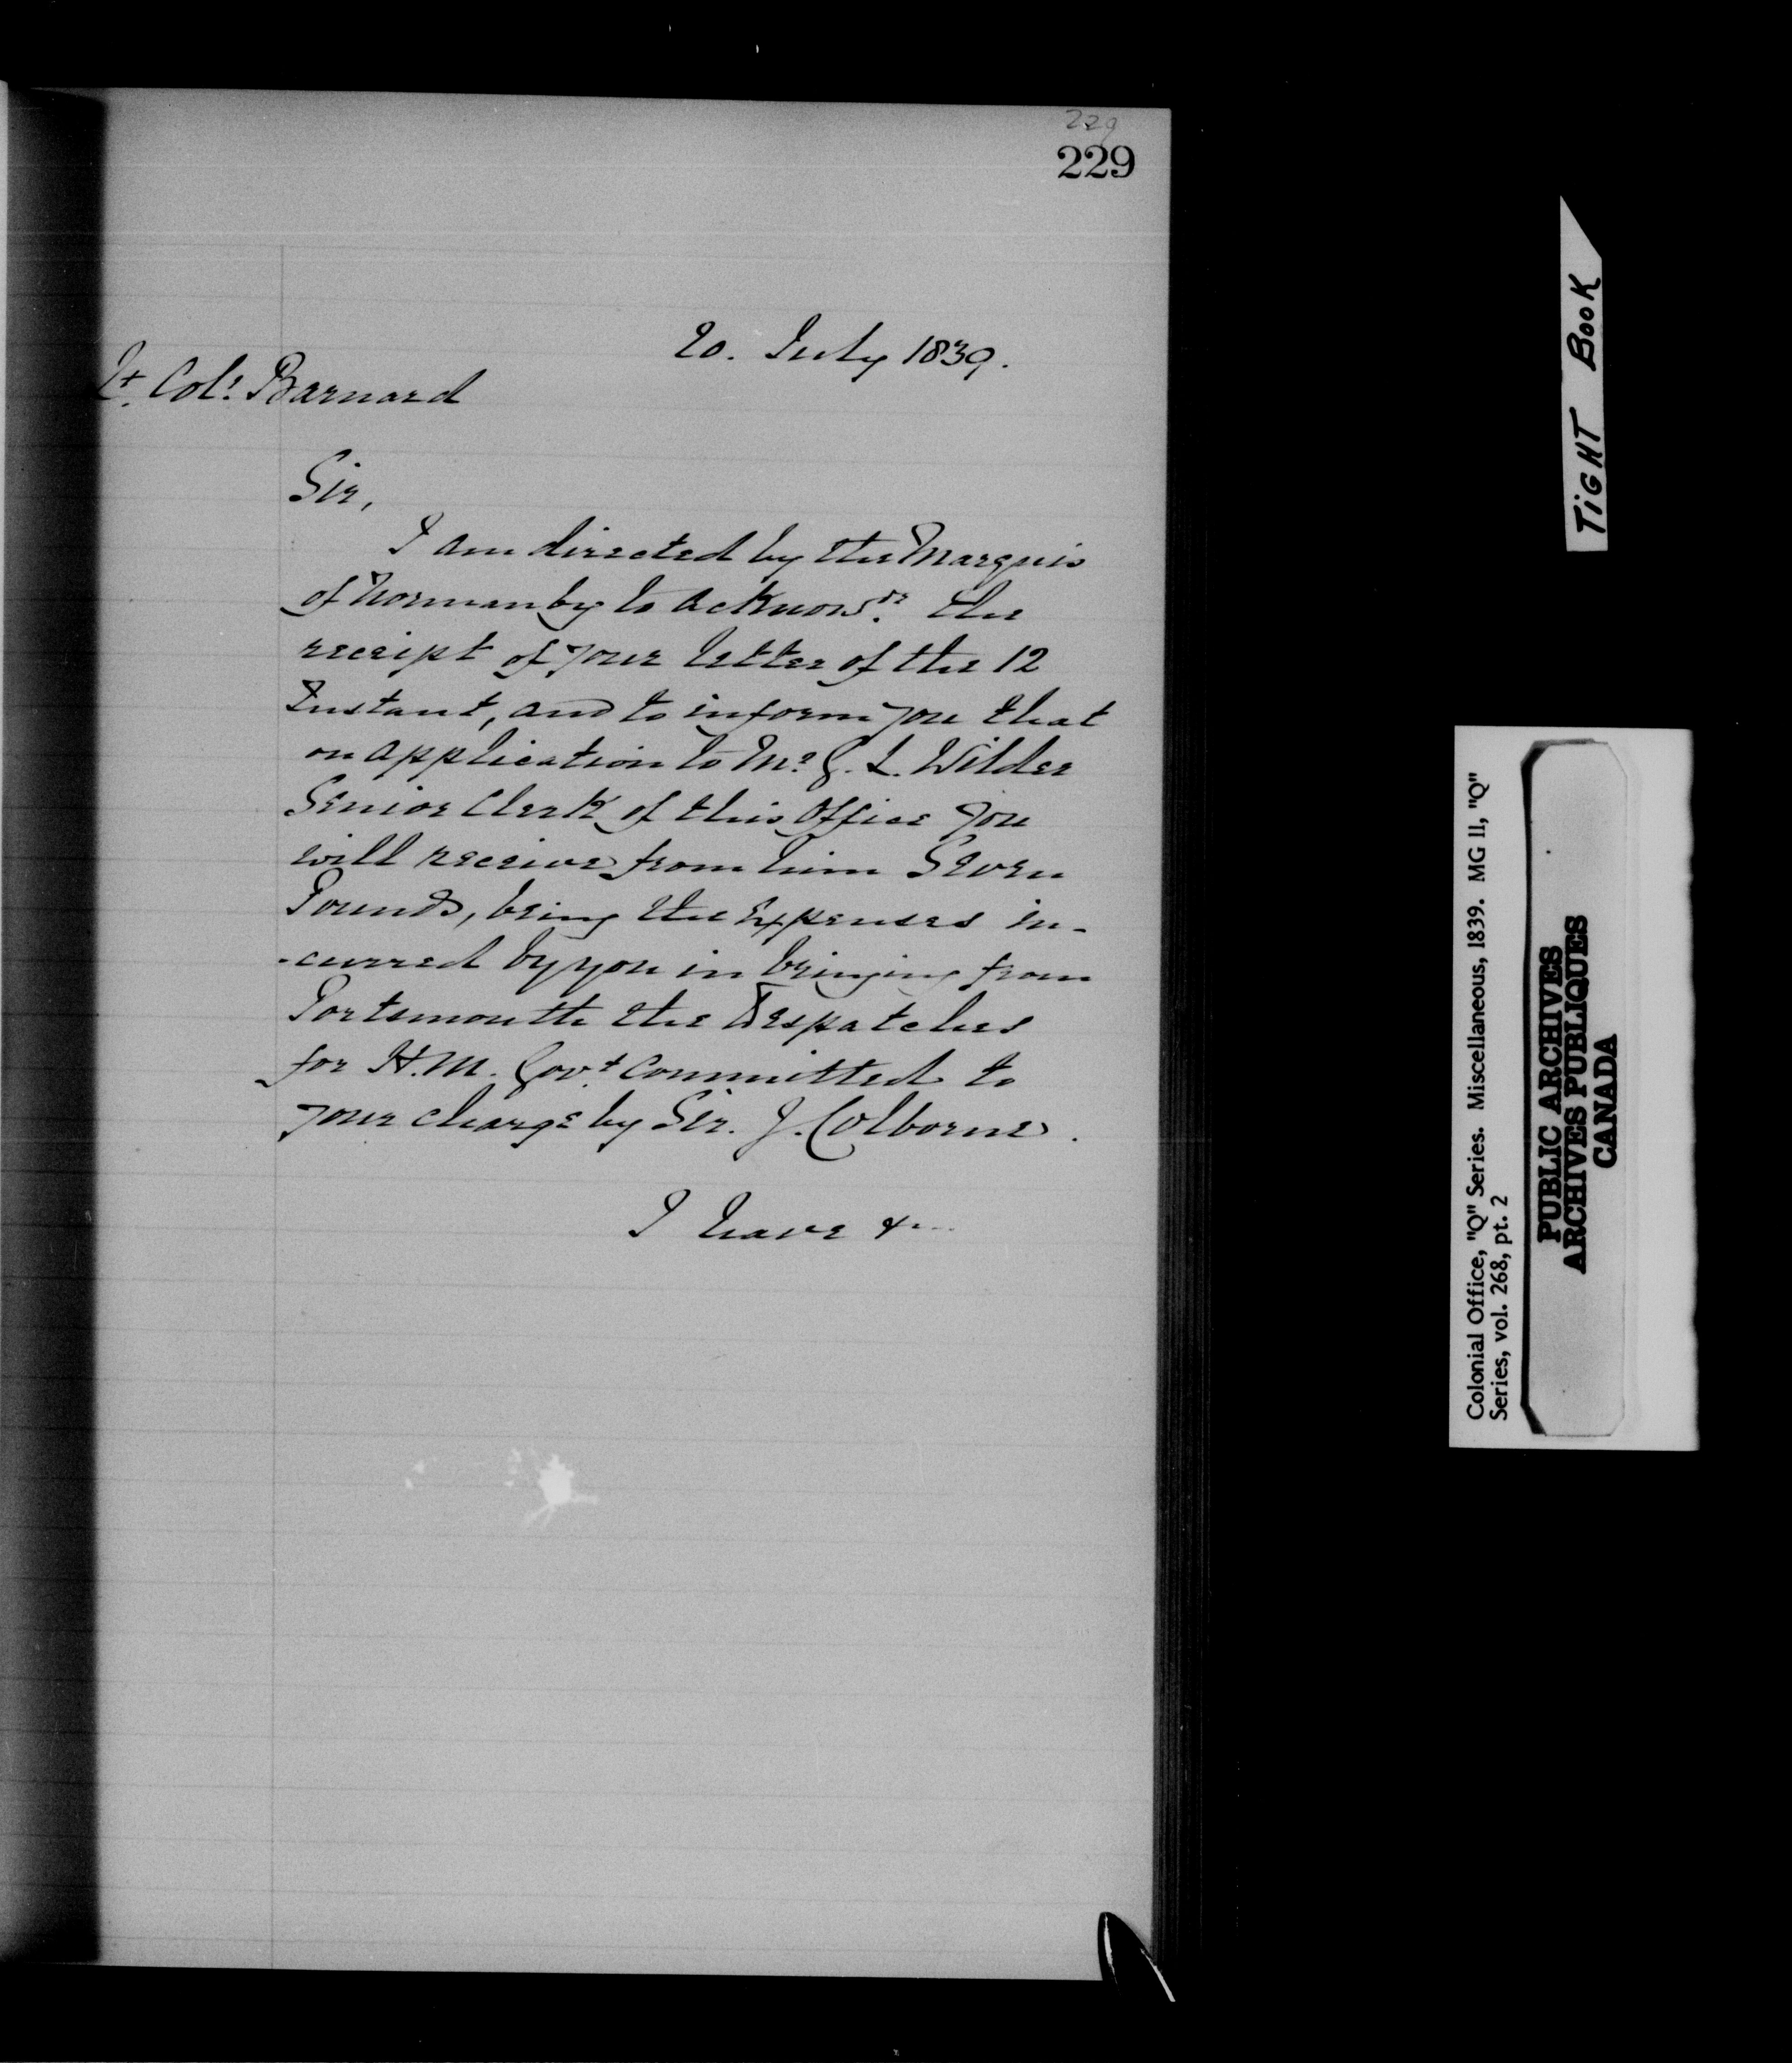 229
229
20. July 1839.
Lt. Col: Barnard
Sir,
I am directed by the Marquis
of Normanby to Acknow: the
receipt of your letter of the 12
Instant, and to inform you that
on application to Mr G. L. Wilder
Senior Clerk of this Office you
will receive from him Seven
Pounds, being the Expenses in-
-curred by you in bringing from
Portsmouth the Despatches
for H.M. Govt. Committed to
your charge by Sir. J. Colborne.
I have &c...
TIGHT BOOK
Colonial Office, "Q" Series. Miscellaneous, 1839. MG 11, "Q"
Series, vol. 268, pt. 2
PUBLIC ARCHIVES
ARCHIVES PUBLIQUES
CANADA